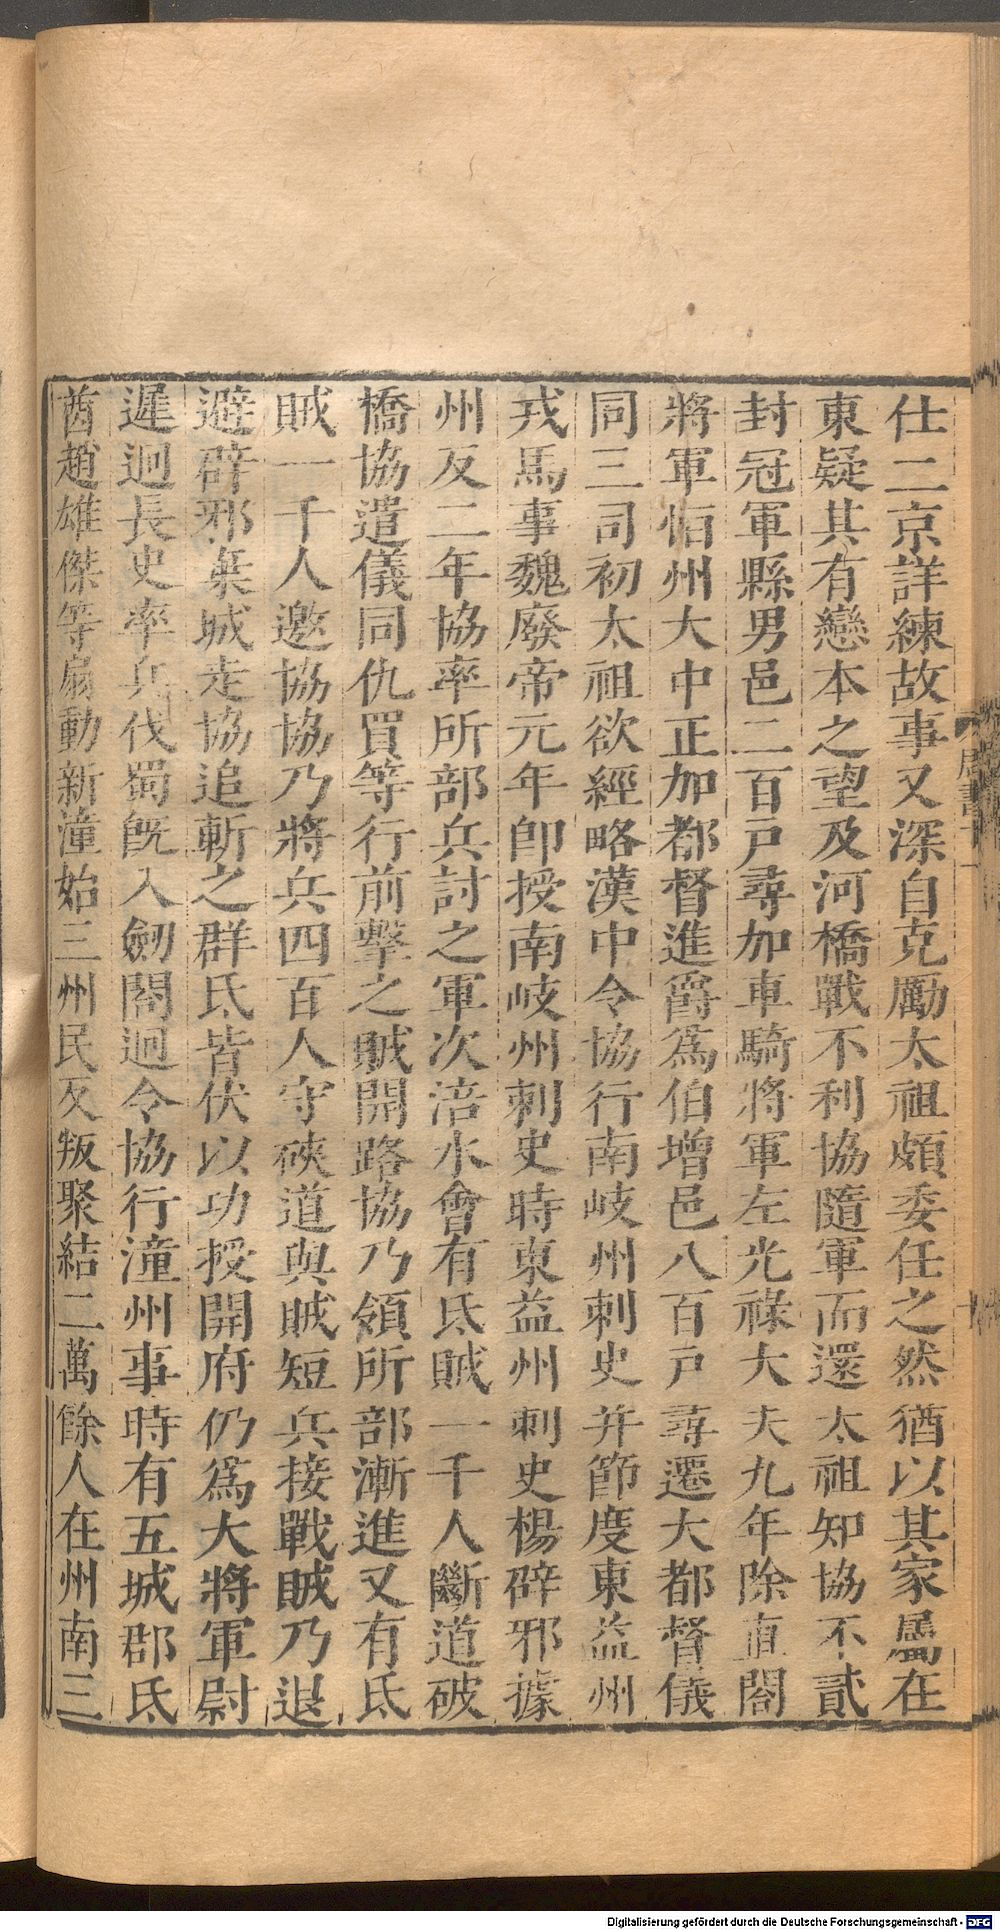 仕二京詳練故事又深自克厲太祖頗委任之然猶以其家屬在
東疑其有戀本之望及河橋戰不利協隨軍而還太祖知協不貳
封冠軍縣男邑二百戶尋加車騎將軍左光祿大夫九年除直閤
將軍恒州大中正加都督進爵爲伯增邑八百戶尋遷大都督儀
同三司初太祖欲經略漢中令協行南岐州刺史并節度東益州
戎馬事魏廢帝元年卽授南岐州刺史時東益州刺史楊辟邪據
州反二年協率所部兵討之軍次涪水會有氐賊一千人斷道破
橋協遣儀同仇買等行前擊之賊開路協乃領所部漸進又有氐
賊一千人邀協協乃將兵四百人守硤道與賊短兵接戰賊乃退
避辟邪棄城走協追斬之群氐皆伏以功授開府仍爲大將軍尉
遲迥長史率兵伐蜀旣入劒閣迥令協行潼州事時有五城郡氐
酋趙雄傑等扇動新潼始三州民反叛聚結二萬餘人在州南三
周書十一
十
Digitalisierung gefördert durch die Deutsche Forschungsgemeinschaft - DFG